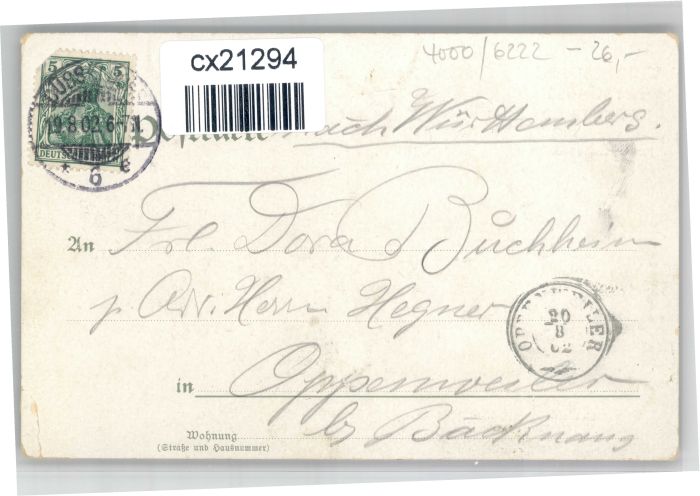 cx21294
4000/6222 - 26,-
5 5
19.8.02.6-7
DEUTSCHES
* 6 e
Postkarte nach Württemberg.
An Frl. Dora Buchheim
p. Adr. Herrn Hegner
OPPENWEILER
20
8
02
in Oppenweiler
by Backnang
Wohnung
(Straße und Hausnummer)